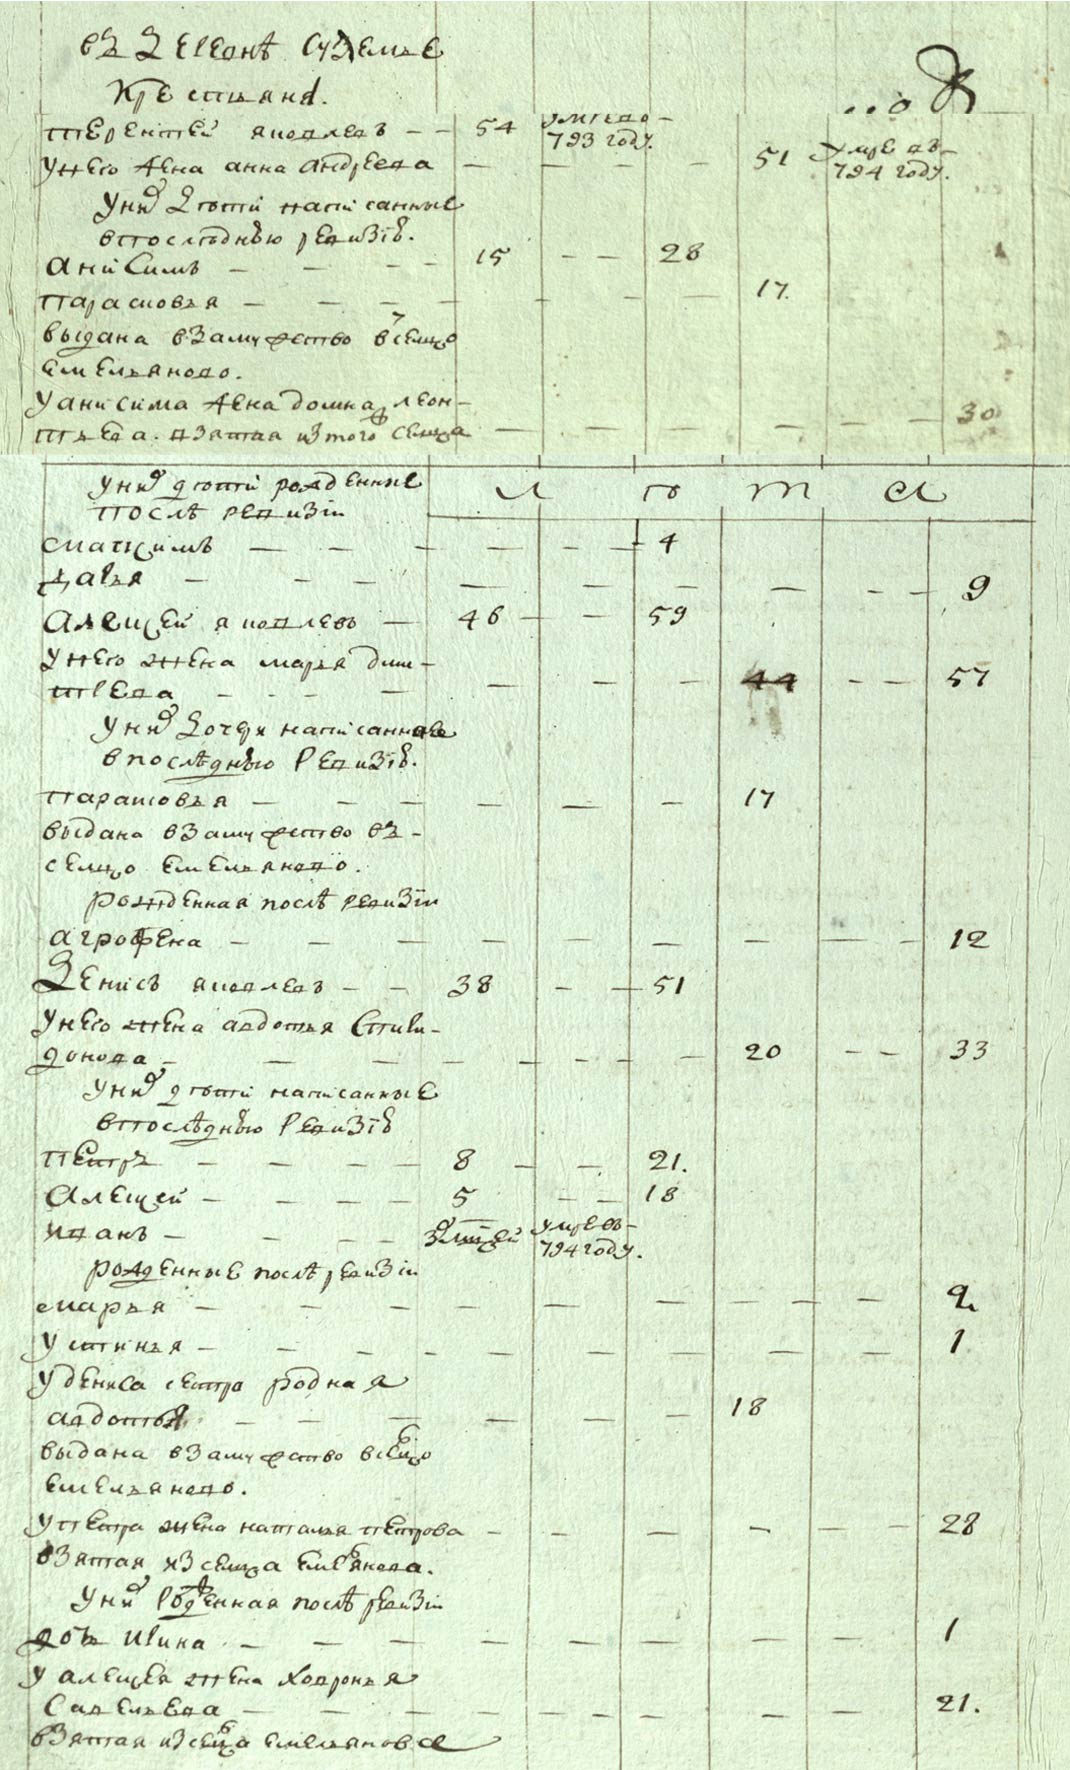 крестьяня.
терентей яковлевъ — — 54 умре во- 793 году.
у него жена анна андреева — — — — 51 умре въ- 794 году.
у них дѣти написанныє
в последнѣю ревизїю.
анисимъ — — — — 15 — — 28
парасковья — — — — — — — 17.
выдана взамужество в селцо
емельяново.
у анисима жена домна леон-
тьева. взятая из того селца — — — — — 30
у них дѣти рожденные
послѣ ревизіи
л ѣ т а
максимъ — — — — — — 4
дарья — — — — — — — — — 9
алексей яковлевъ — 46 — — 59
у него жена марья дми-
треева — — — — — — 44 — — 57
у них дочери написанные
в последнѣю ревизїю.
парасковья — — — — — — 17
выдана взамужество въ-
селцо емельяново.
рожденная послѣ ревизіи
агрофена — — — — — — — — 12
денисъ яковлевъ — — 38 — — 51
у него жена авдотья спири-
донова — — — — — — — 20 — — 33
у них дѣти написанные
в последнѣю ревизїю
петръ — — — — 8 — — 21.
алексей — — — — 5 — — 18
иванъ — — — — умре въ- 794 году.
рожденные послѣ ревизіи
марья — — — — — — — — 2
устинья — — — — — — — — — 1
у дениса сестра родная
авдотья — — — — — 18
выдана взамужество в селцо
емельяново.
у петра жена наталья петрова — — — — — — 28
взятая из селца емельянова.
у них рожденная послѣ ревизіи
дочь ирина — — — — — — — — 1
у алексея жена ховронья
савельева — — — — — — — — 21.
взятая из селца емельянова